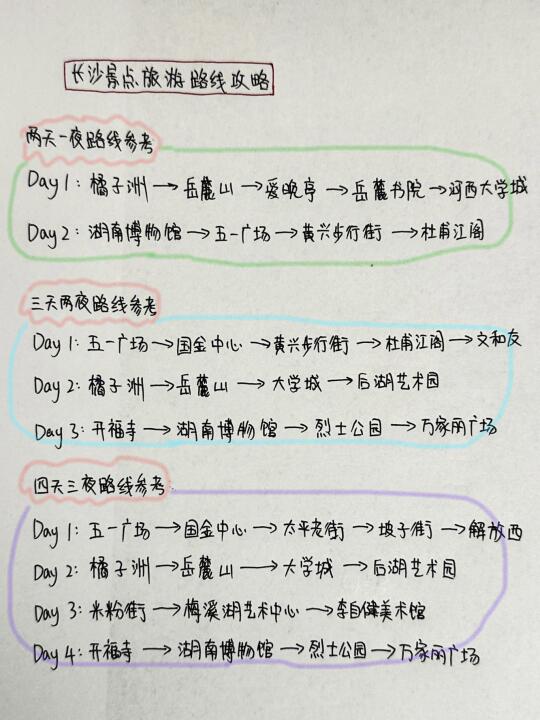 长沙景点旅游路线攻略
两天一夜路线参考
Day 1: 橘子洲→岳麓山→爱晚亭→岳麓书院→河西大学城
Day 2: 湖南博物馆→五一广场→黄兴步行街→杜甫江阁
三天两夜路线参考
Day 1: 五一广场→国金中心→黄兴步行街→杜甫江阁→文和友
Day 2: 橘子洲→岳麓山→大学城→后湖艺术园
Day 3: 开福寺→湖南博物馆→烈士公园→万家丽广场
四天三夜路线参考:
Day 1: 五一广场→国金中心→太平老街→坡子街→解放西
Day 2: 橘子洲→岳麓山→大学城→后湖艺术园
Day 3: 米粉街→梅溪湖艺术中心→李自健美术馆
Day 4: 开福寺→湖南博物馆→烈士公园→万家丽广场